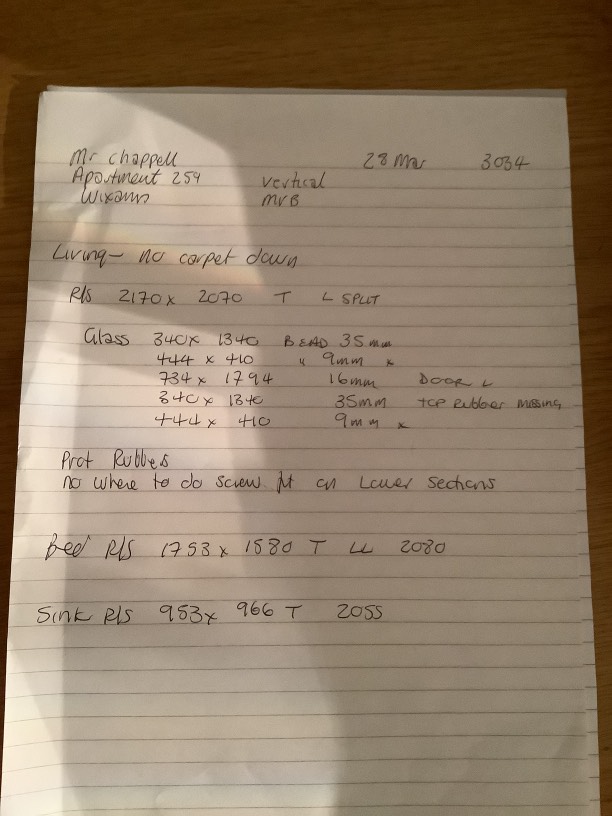 Mr Chappell 28 Mar 3034
Apartment 259 vertical
Wixams MVB
Living - no carpet down
R/S 2170 x 2070 T L SPLIT
Glass 340 x 1340 BEAD 35mm
444 x 410 " 9mm x
734 x 1794 16mm DOOR L
340 x 1340 35mm top Rubber missing
444 x 410 9mm x
Prot Rubbers
no where to do screw fit on Lower Sections
Bed R/S 1753 x 1580 T LL 2080
Sink R/S 953 x 966 T 2055